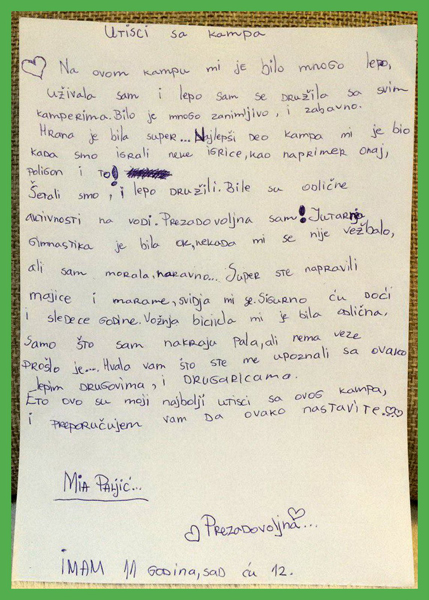 Utisci sa kampa
Na ovom kampu mi je bilo mnogo lepo,
Uživala sam i lepo sam se družila sa svim
kamperima. Bilo je mnogo zanimljivo, i zabavno.
Hrana je bila super... Najlepši deo kampa mi je bio
kada smo igrali neke igrice, kao naprimer onaj,
poligon i to!
Šetali smo, i lepo družili. Bile su odlične
aktivnosti na vodi. Prezadovoljna sam! Jutarnja
gimnastika je bila ok, nekada mi se nije vežbalo,
ali sam morala, naravno... Super ste napravili
majice i marame, svidja mi se. Sigurno ću doći
i sledece godine. Vožnja bicikla mi je bila odlična,
samo što sam nakraju pala, ali nema veze
prošlo je.... Hvala vam što ste me upoznali sa ovako
lepim drugovima, i drugaricama.
Eto ovo su moji najbolji utisci sa ovog kampa,
i preporučujem vam da ovako nastavite.
Mia Paljić...
Prezadovoljna...
IMAM 11 GODINA, SAD ĆU 12.